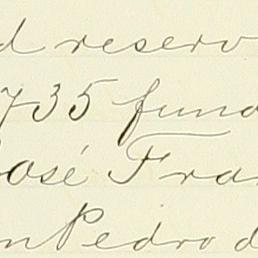 d reserv
735 fund
José Fra
n Pedro d